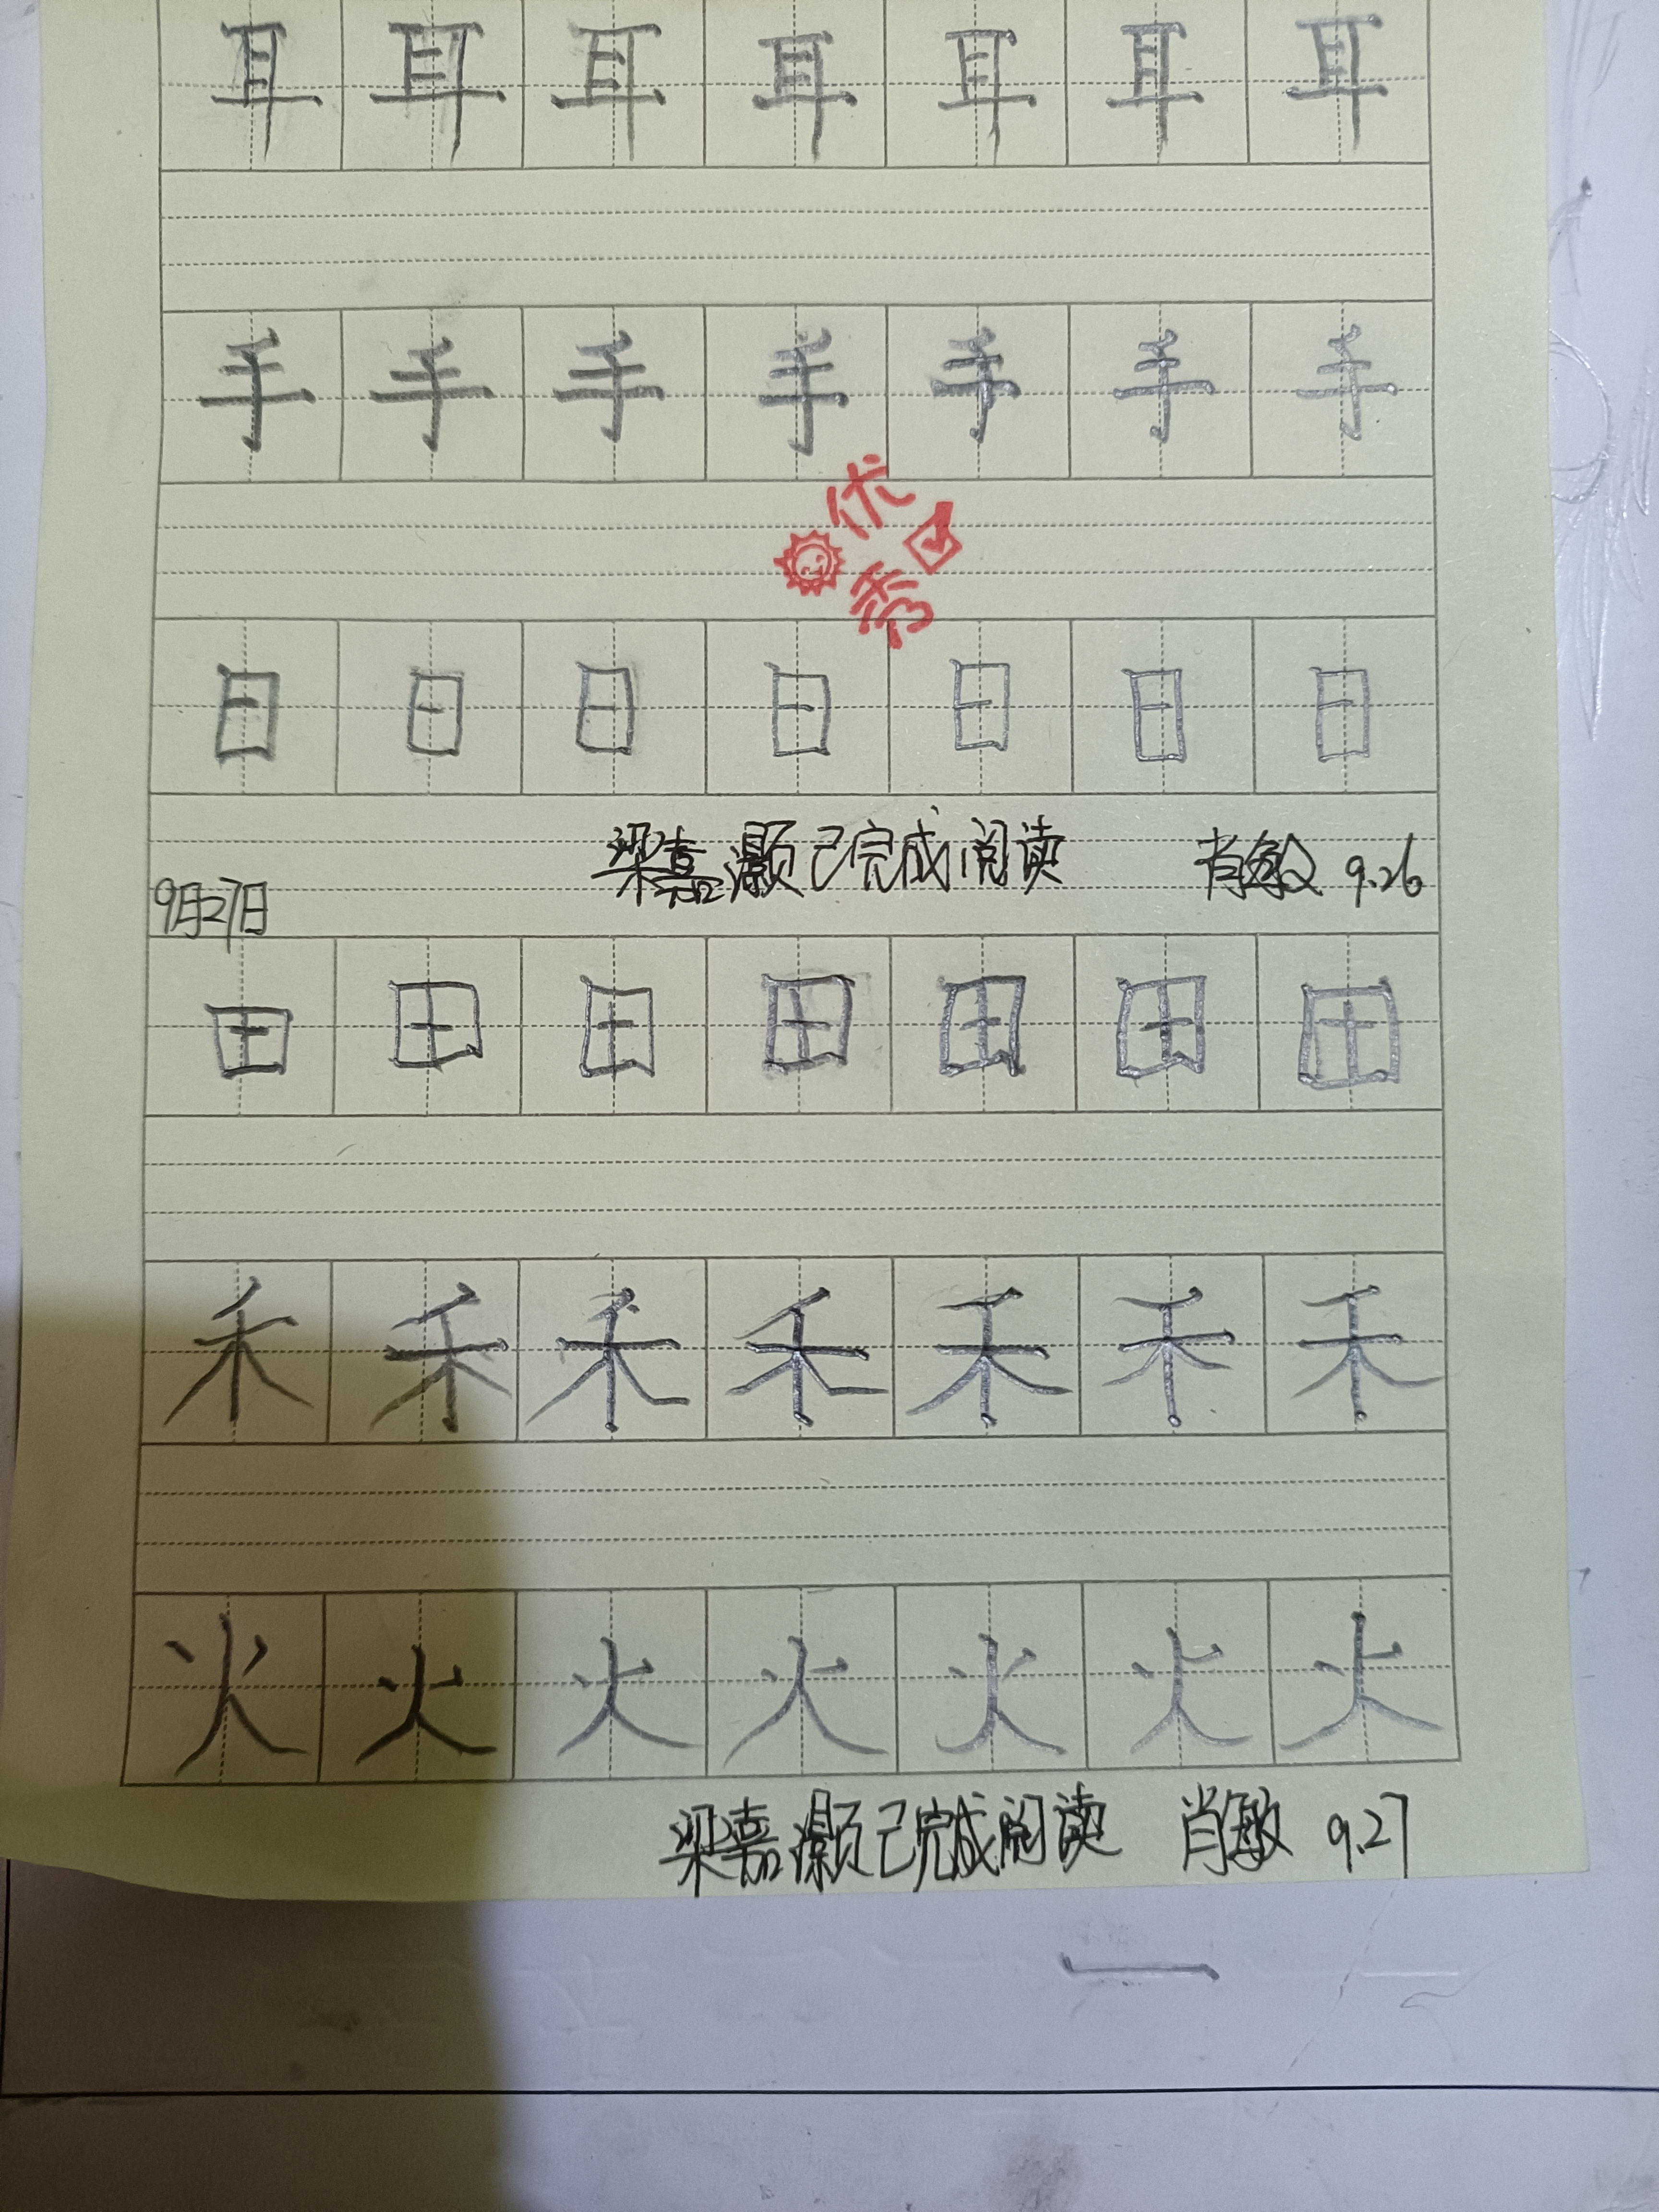 耳 耳 耳 耳 耳 耳 耳
手 手 手 手 手 手 手
优
秀
日 日 日 日 日 日 日
梁嘉灏已完成阅读 肖敏 9.26
9月27日
田 田 田 田 田 田 田
禾 禾 禾 禾 禾 禾 禾
火 火 火 火 火 火 火
梁嘉灏已完成阅读 肖敏 9.27
一